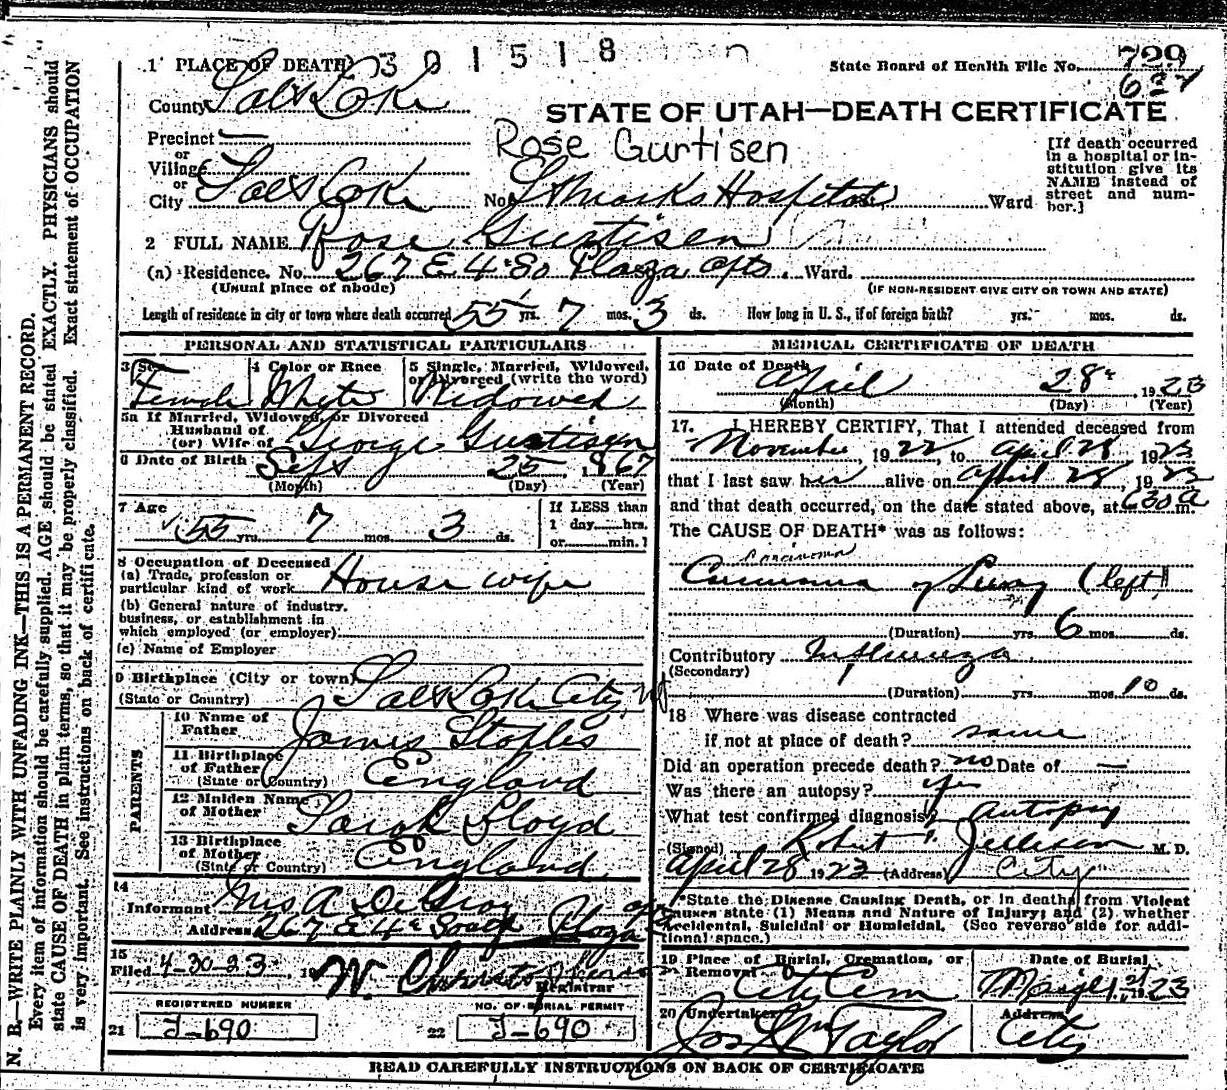 N. B.—WRITE PLAINLY WITH UNFADING INK—THIS IS A PERMANENT RECORD.
Every item of information should be carefully supplied. AGE should be stated EXACTLY. PHYSICIANS should
state CAUSE OF DEATH in plain terms, so that it may be properly classified. Exact statement of OCCUPATION
is very important. See instructions on back of certificate.
301518
1 PLACE OF DEATH
State Board of Health File No. 729
637
County Salt Lake
STATE OF UTAH—DEATH CERTIFICATE
Precinct
Rose Gurtisen
or
Village
or
City Salt Lake No. St Marks Hospital Ward
[If death occurred
in a hospital or in-
stitution give its
NAME instead of
street and num-
ber.]
2 FULL NAME Rose Gurtisen
(a) Residence. No. 267 E 4 So Plaza apts. Ward.
(Usual place of abode) (IF NON-RESIDENT GIVE CITY OR TOWN AND STATE)
Length of residence in city or town where death occurred 55 yrs. 7 mos. 3 ds. How long in U. S., if of foreign birth? yrs. mos. ds.
PERSONAL AND STATISTICAL PARTICULARS
3 Sex 4 Color or Race 5 Single, Married, Widowed,
or Divorced (write the word)
Female White Widowed
5a If Married, Widowed, or Divorced
Husband of
(or) Wife of George Gurtisen
6 Date of Birth Sept 25 1867
(Month) (Day) (Year)
7 Age
55 yrs. 7 mos. 3 ds.
If LESS than
1 day hrs.
or min.]
8 Occupation of Deceased
(a) Trade, profession or
particular kind of work House wife
(b) General nature of industry,
business, or establishment in
which employed (or employer)
(c) Name of Employer
9 Birthplace (City or town)
(State or Country) Salt Lake City, Ut
PARENTS
10 Name of
Father James Staples
11 Birthplace
of Father
(State or Country) England
12 Maiden Name
of Mother Sarah Lloyd
13 Birthplace
of Mother
(State or Country) England
14
Informant Mrs A De Gray
Address 267 E 4th South Plaza apts
15
Filed 4-30-23, 19 W. Christopherson
Registrar
REGISTERED NUMBER NO. OF BURIAL PERMIT
21 J-690 22 J-690
MEDICAL CERTIFICATE OF DEATH
16 Date of Death
April 28, 1923
(Month) (Day) (Year)
17. I HEREBY CERTIFY, That I attended deceased from
November, 1922, to April 28 1923
that I last saw her alive on April 28, 1923
and that death occurred, on the date stated above, at 630 a m.
The CAUSE OF DEATH* was as follows:
Carcinoma
Carcinoma of Lung (left)
(Duration) yrs. 6 mos. ds.
Contributory Influenza
(Secondary)
(Duration) yrs. mos. 10 ds.
18 Where was disease contracted
if not at place of death? same
Did an operation precede death? no Date of —
Was there an autopsy? yes
What test confirmed diagnosis? autopsy
(Signed) Robert Jellison M. D.
April 28 1923 (Address) City
*State the Disease Causing Death, or in deaths from Violent
Causes state (1) Means and Nature of Injury; and (2) whether
Accidental, Suicidal or Homicidal. (See reverse side for addi-
tional space.)
19 Place of Burial, Cremation, or
Removal Date of Burial
City Cem May 1st 1923
20 Undertaker Address
Jos Wm Taylor City
READ CAREFULLY INSTRUCTIONS ON BACK OF CERTIFICATE